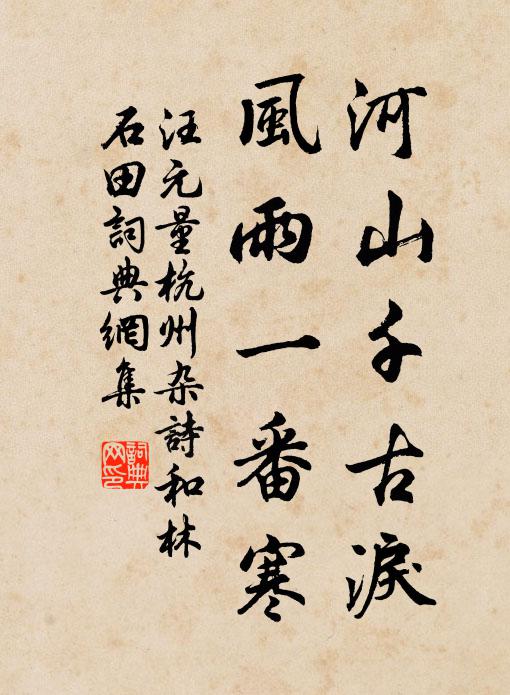 河山千古淚
風雨一番寒
汪元量杭州杂詩和林
石田詞典網集
詞典
网印